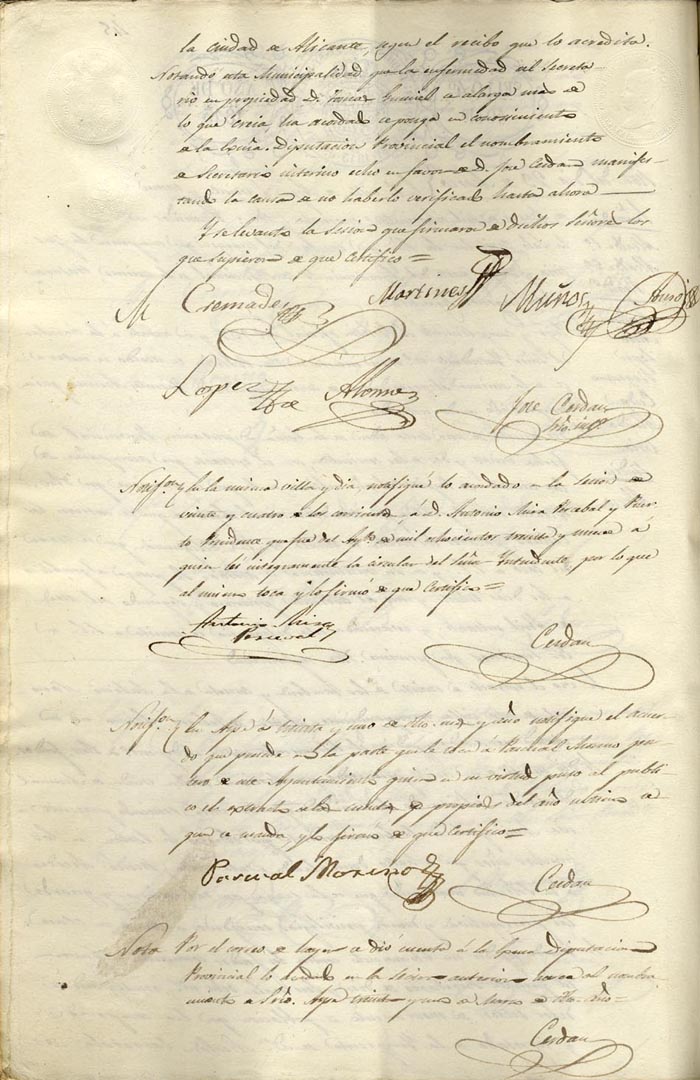 la ciudad de Alicante, segun el recibo que lo acredita.
Notando esta Municipalidad que la enfermedad del Secreta-
rio en propiedad D. Tomas se alarga mas de
lo que creia ha acordado se ponga en conocimiento
de la Exma. Diputacion Provincial el nombramiento
de Secretario interino echo en favor de D. José Cerdan manifes-
tando la causa de no haberlo verificado hasta ahora
Y se levantó la Sesion que firmaron de dichos Señores los
que supieron de que certifico =
M Cremades Martines Muños
Lopez Alonso
José Cerdan
Srio. int.º
Notif.on Y en la misma villa y dia, notifiqué lo acordado en la Sesion de
veinte y cuatro de los corrientes, á D. Antonio Mira Perceval y
Presidente que fue del Ayto. de mil ochocientos treinta y nueve a
quien leí integramente la circular del Señor Intendente, por lo que
al mismo toca y lo firmó de que certifico =
Antonio Mira
Perceval
Cerdan
Notif.on Y en Aspe á treinta y uno de dho. mes y año notifique el acuer-
do que precede en la parte que le toca á Pascual Moreno por-
tero de este Ayuntamiento quien en su virtud puso al publi-
co el extracto de las cuentas de propios del año ultimo de
que se acuerda y lo firmó de que certifico =
Pascual Moreno
Cerdan
Nota Por el correo de hoy se dió cuenta á la Exma. Diputacion
Provincial lo acordado en la Sesion anterior acerca del nombra-
miento de Srio. Aspe treinta y uno de Marzo de dho. año =
Cerdan